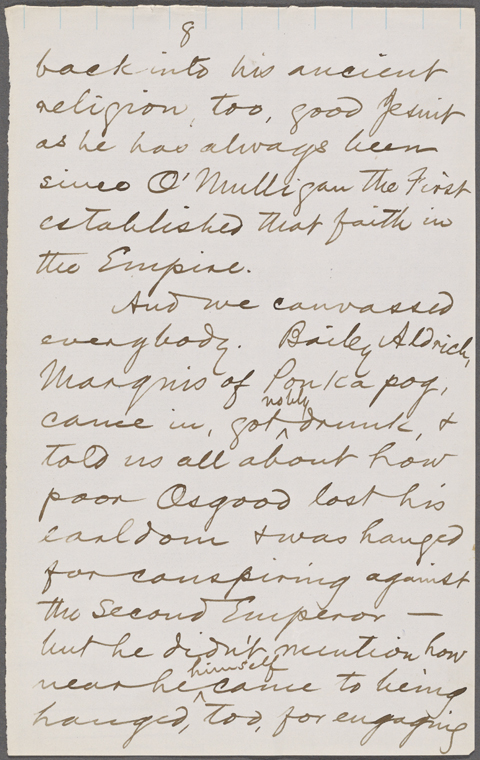 8
back into his ancient
religion, too, good Jesuit
as he has always been
since O'Mulligan the First
established that faith in
the Empire.
And we canvassed
everybody. Bailey Aldrich,
Marquis of Ponkapog,
nobly
came in, got drunk, &
told us all about how
poor Osgood lost his
earldom & was hanged
for conspiring against
the Second Emperor —
but he didn't mention how
himself
near he came to being
hanged, too, for engaging